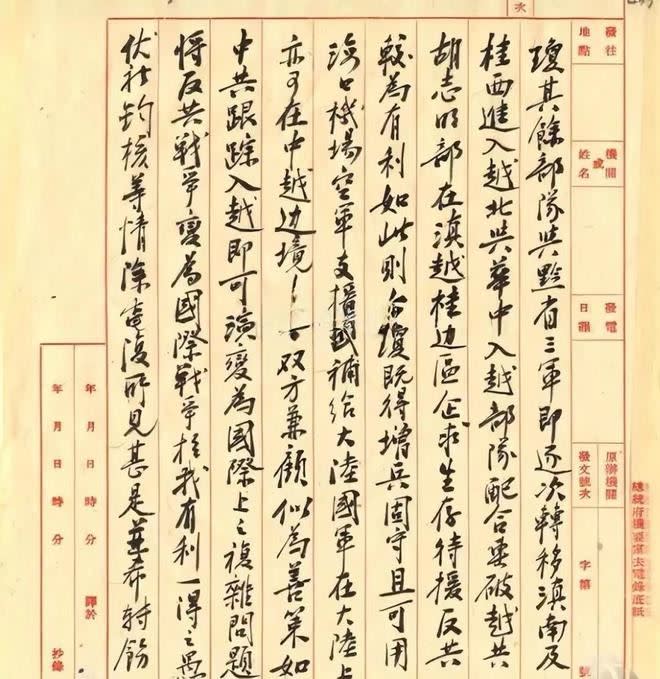 次
總統府機要室去電錄底紙
發往地點
機關或姓名
發電日韻
原辦機關
發文號次
字第
號
瓊其餘部隊與黔省三軍即逐次轉移滇南及
桂西進入越北與華中入越部隊配合擊破越共
胡志明部在滇越桂边區企求生存待援反共
較為有利如此則台瓊既得增兵固守且可用
海口機場空軍支援補給大陸國軍在大陸上
亦可在中越边境双方兼顧似為善策如
中共跟踪入越即可演變為國際上之複雜問題
将反共戰爭變為國際戰爭於我有利一得之愚
伏祈鈞核等情除電復所見甚是並希轉飭
年月日時分 譯於
年月日時分 抄錄